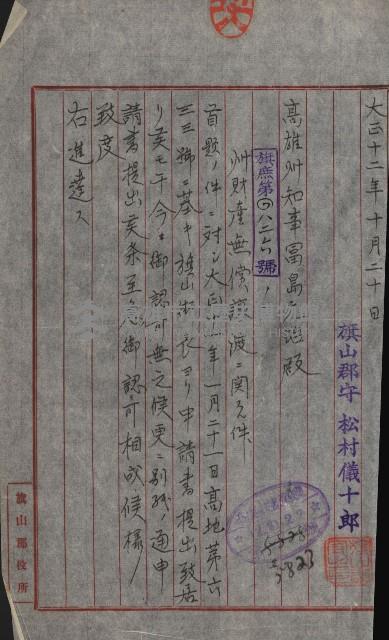 大正十二年十月二十日
旗山郡守 松村儀十郎
高雄州知事富島元治殿
旗庶第四八二六號ノ
州財産無償讓渡ニ関スル件
首題ノ件ニ対シ大正十一年一月二十一日高地第六
三三號ニ基キ旗山街長ヨリ申請書提出致居
リ候モ于今御認可無之候更ニ別紙ノ通申
請書提出候条至急御認可相成候様
致度
右進達ス
3823
旗山郡役所